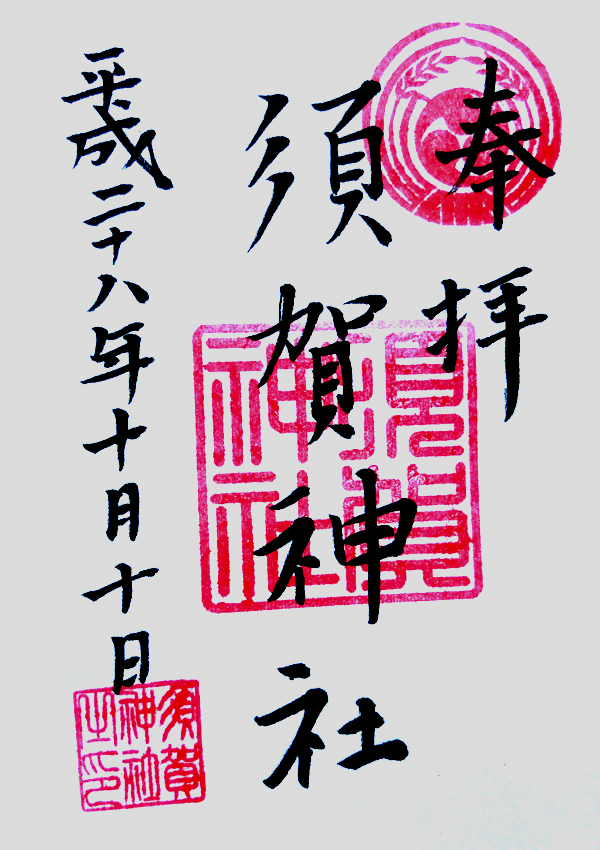 奉拝
須賀神社
平成二十八年十月十日
須賀神社
須賀神社之印